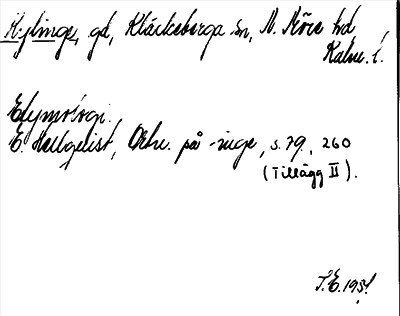 Kylinge, gd, Kläckeberga sn, N. Möre hd,
Kalm. l.
Etymologi.
E. Hellquist, Ortn. på -inge, s. 79, 260
(Tillägg II).
T.E. 1951